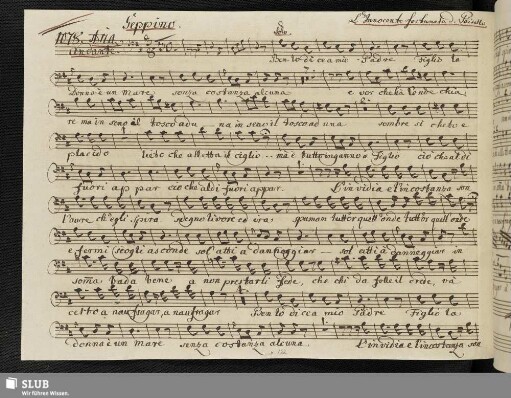 Geppino.
L'Innocente fortunata di Paisiello
1075. Aria
Andante
Solo
Ben lo dicea mio Padre figlio la
Donna è un mare senza costanza alcuna e vor chela l'onde chia
re ma in seno il tosco adu na in seno il tosco ad una sembra si che bo e
placido lieto che alletta il ciglio ma è tutto inganno o figlio ciò che al di
fuori ap par ciò che al di fuori appar. L'invidia e l'incostanza son
l'aure ch'egli spira sdegno livore ed ira spuman tutt'or quell'onde tutt'or quell'onde
e fermi scogli asconde sol atti a danneggiar sol atti à danneggiar in
soma bada bene a non prestarli fede, che chi da folle il crede, và
certo a naufragar, a naufragar Ben lo dicea mio Padre Figlio la
donna è un mare senza costanza alcuna. L'invidia e l'incostanza son
SLUB
Wir führen Wissen.